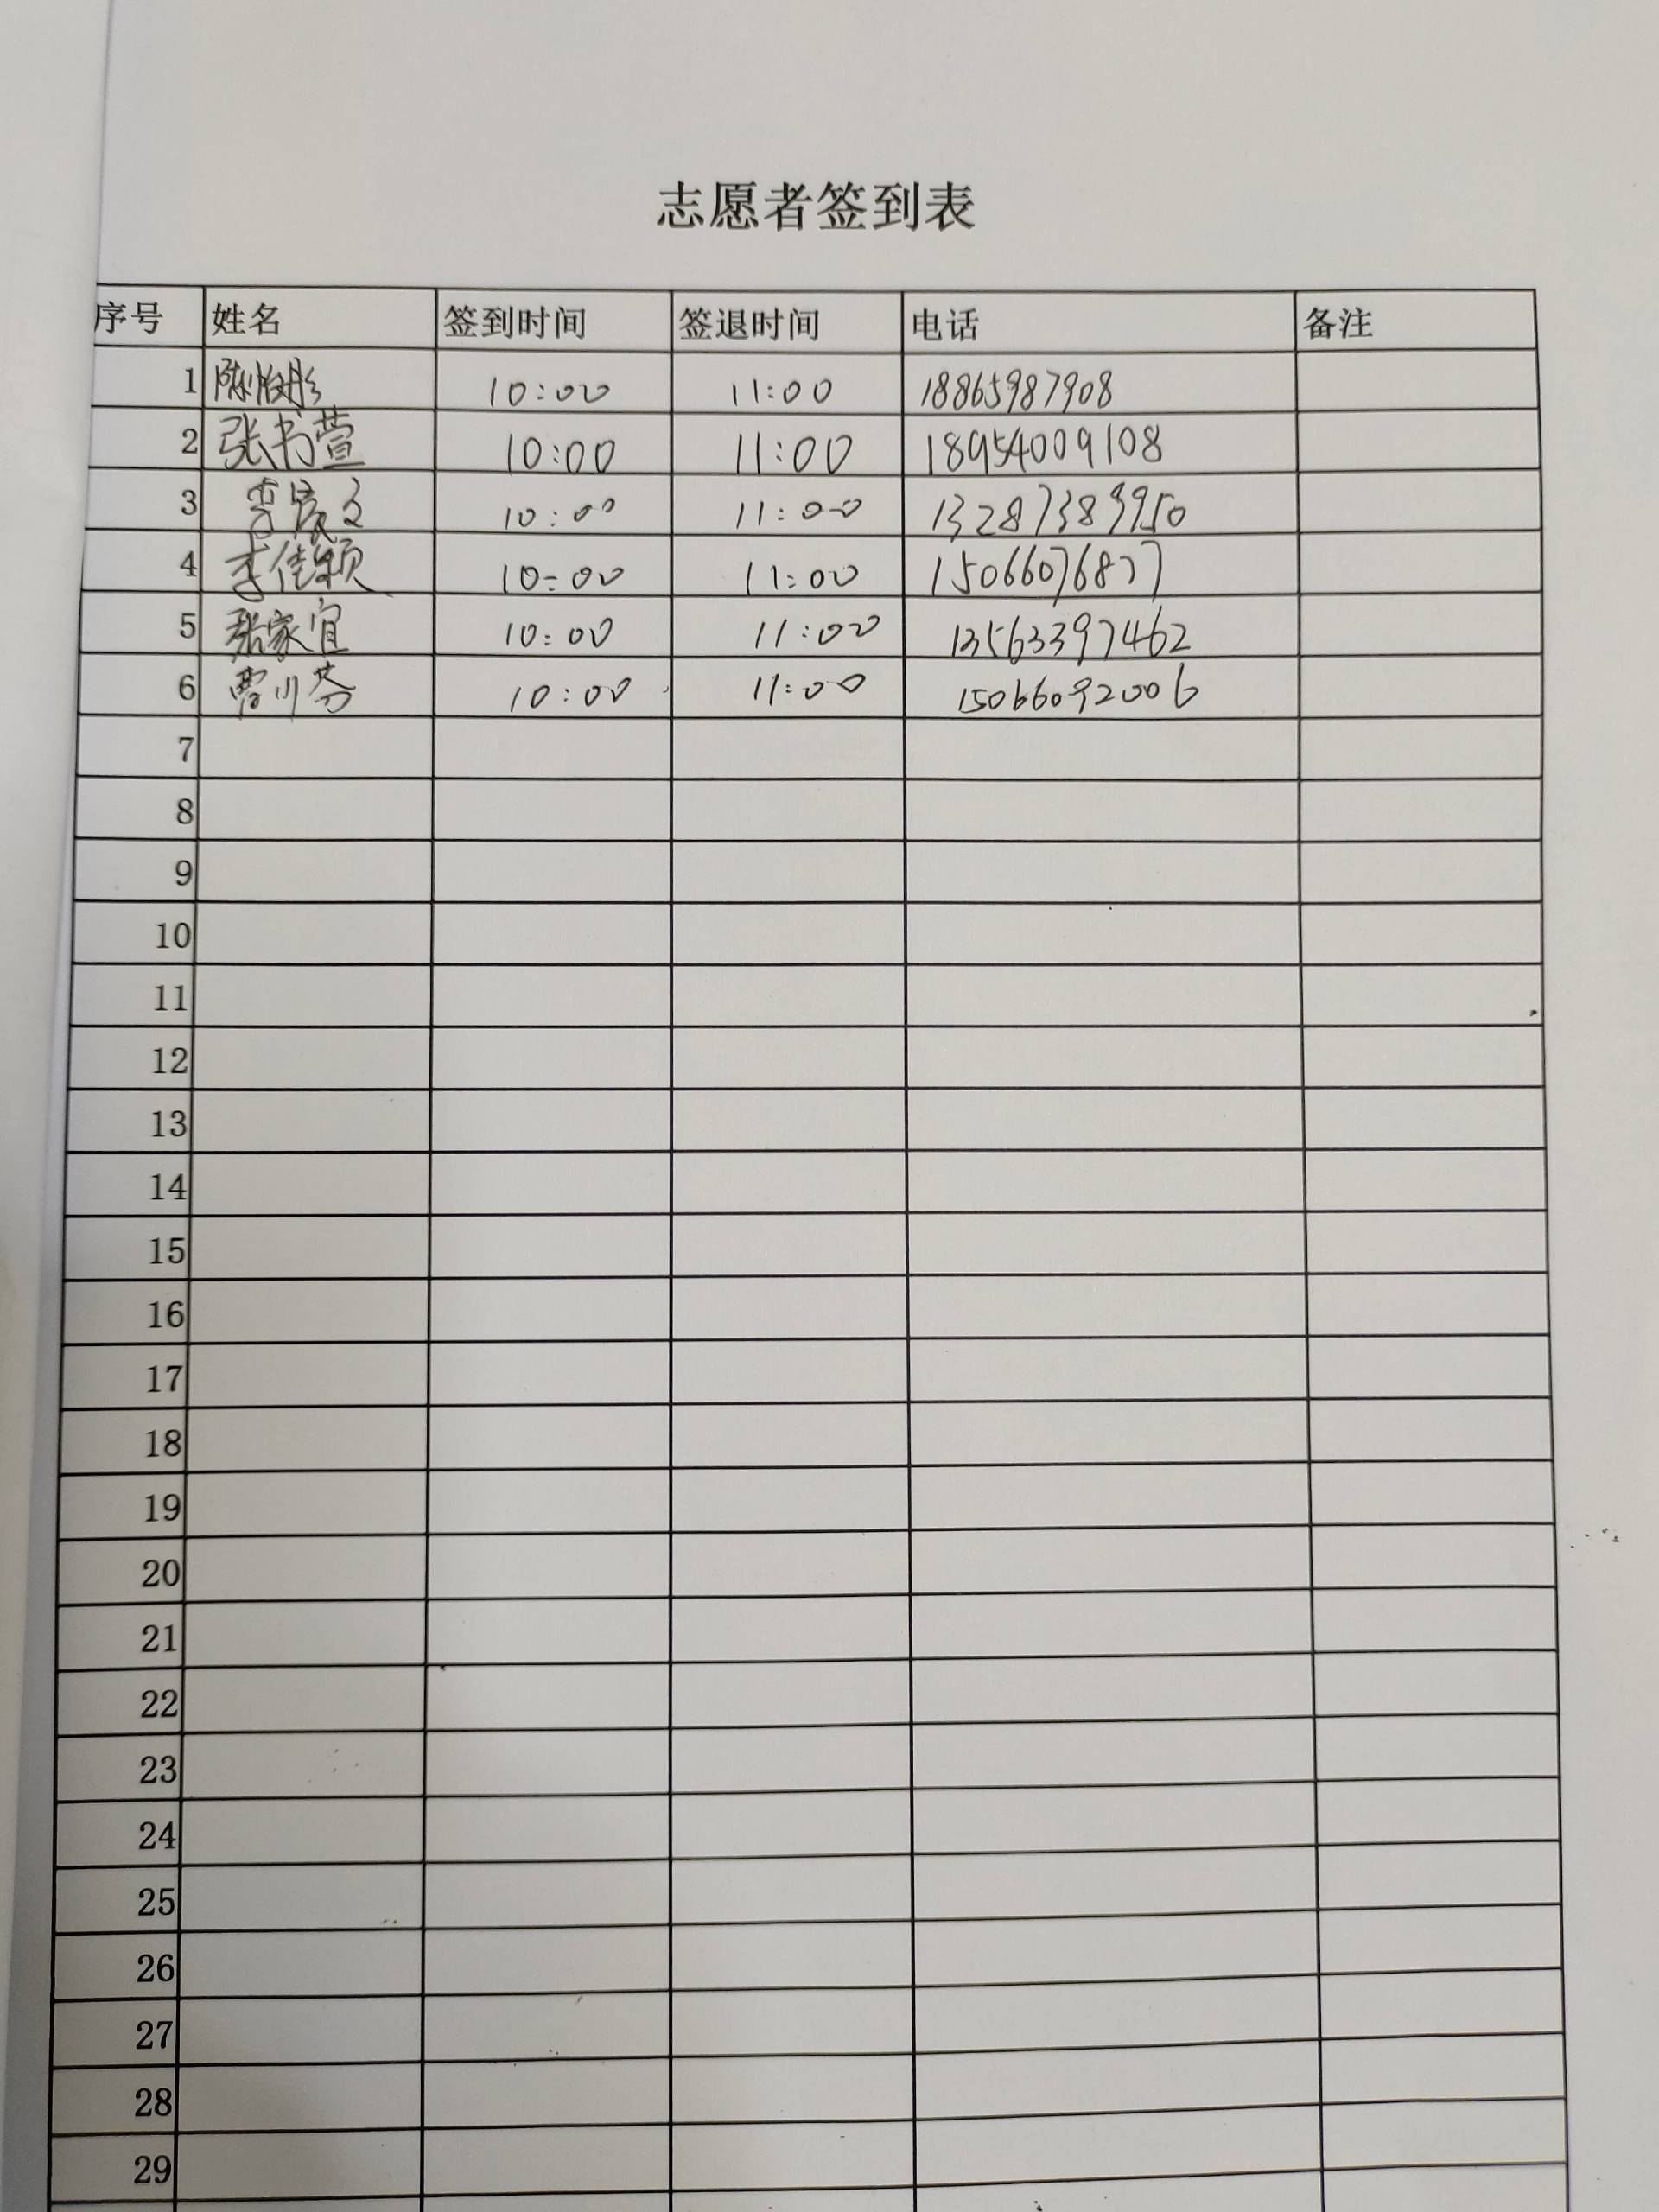 志愿者签到表
序号 姓名 签到时间 签退时间 电话 备注
1 10:00 11:00 18865987908
2 张书萱 10:00 11:00 18954009108
3 10:00 11:00 13287389950
4 李佳颖 10:00 11:00 15066076877
5 张家宜 10:00 11:00 13563397462
6 曹川芬 10:00 11:00 15066092006
7
8
9
10
11
12
13
14
15
16
17
18
19
20
21
22
23
24
25
26
27
28
29